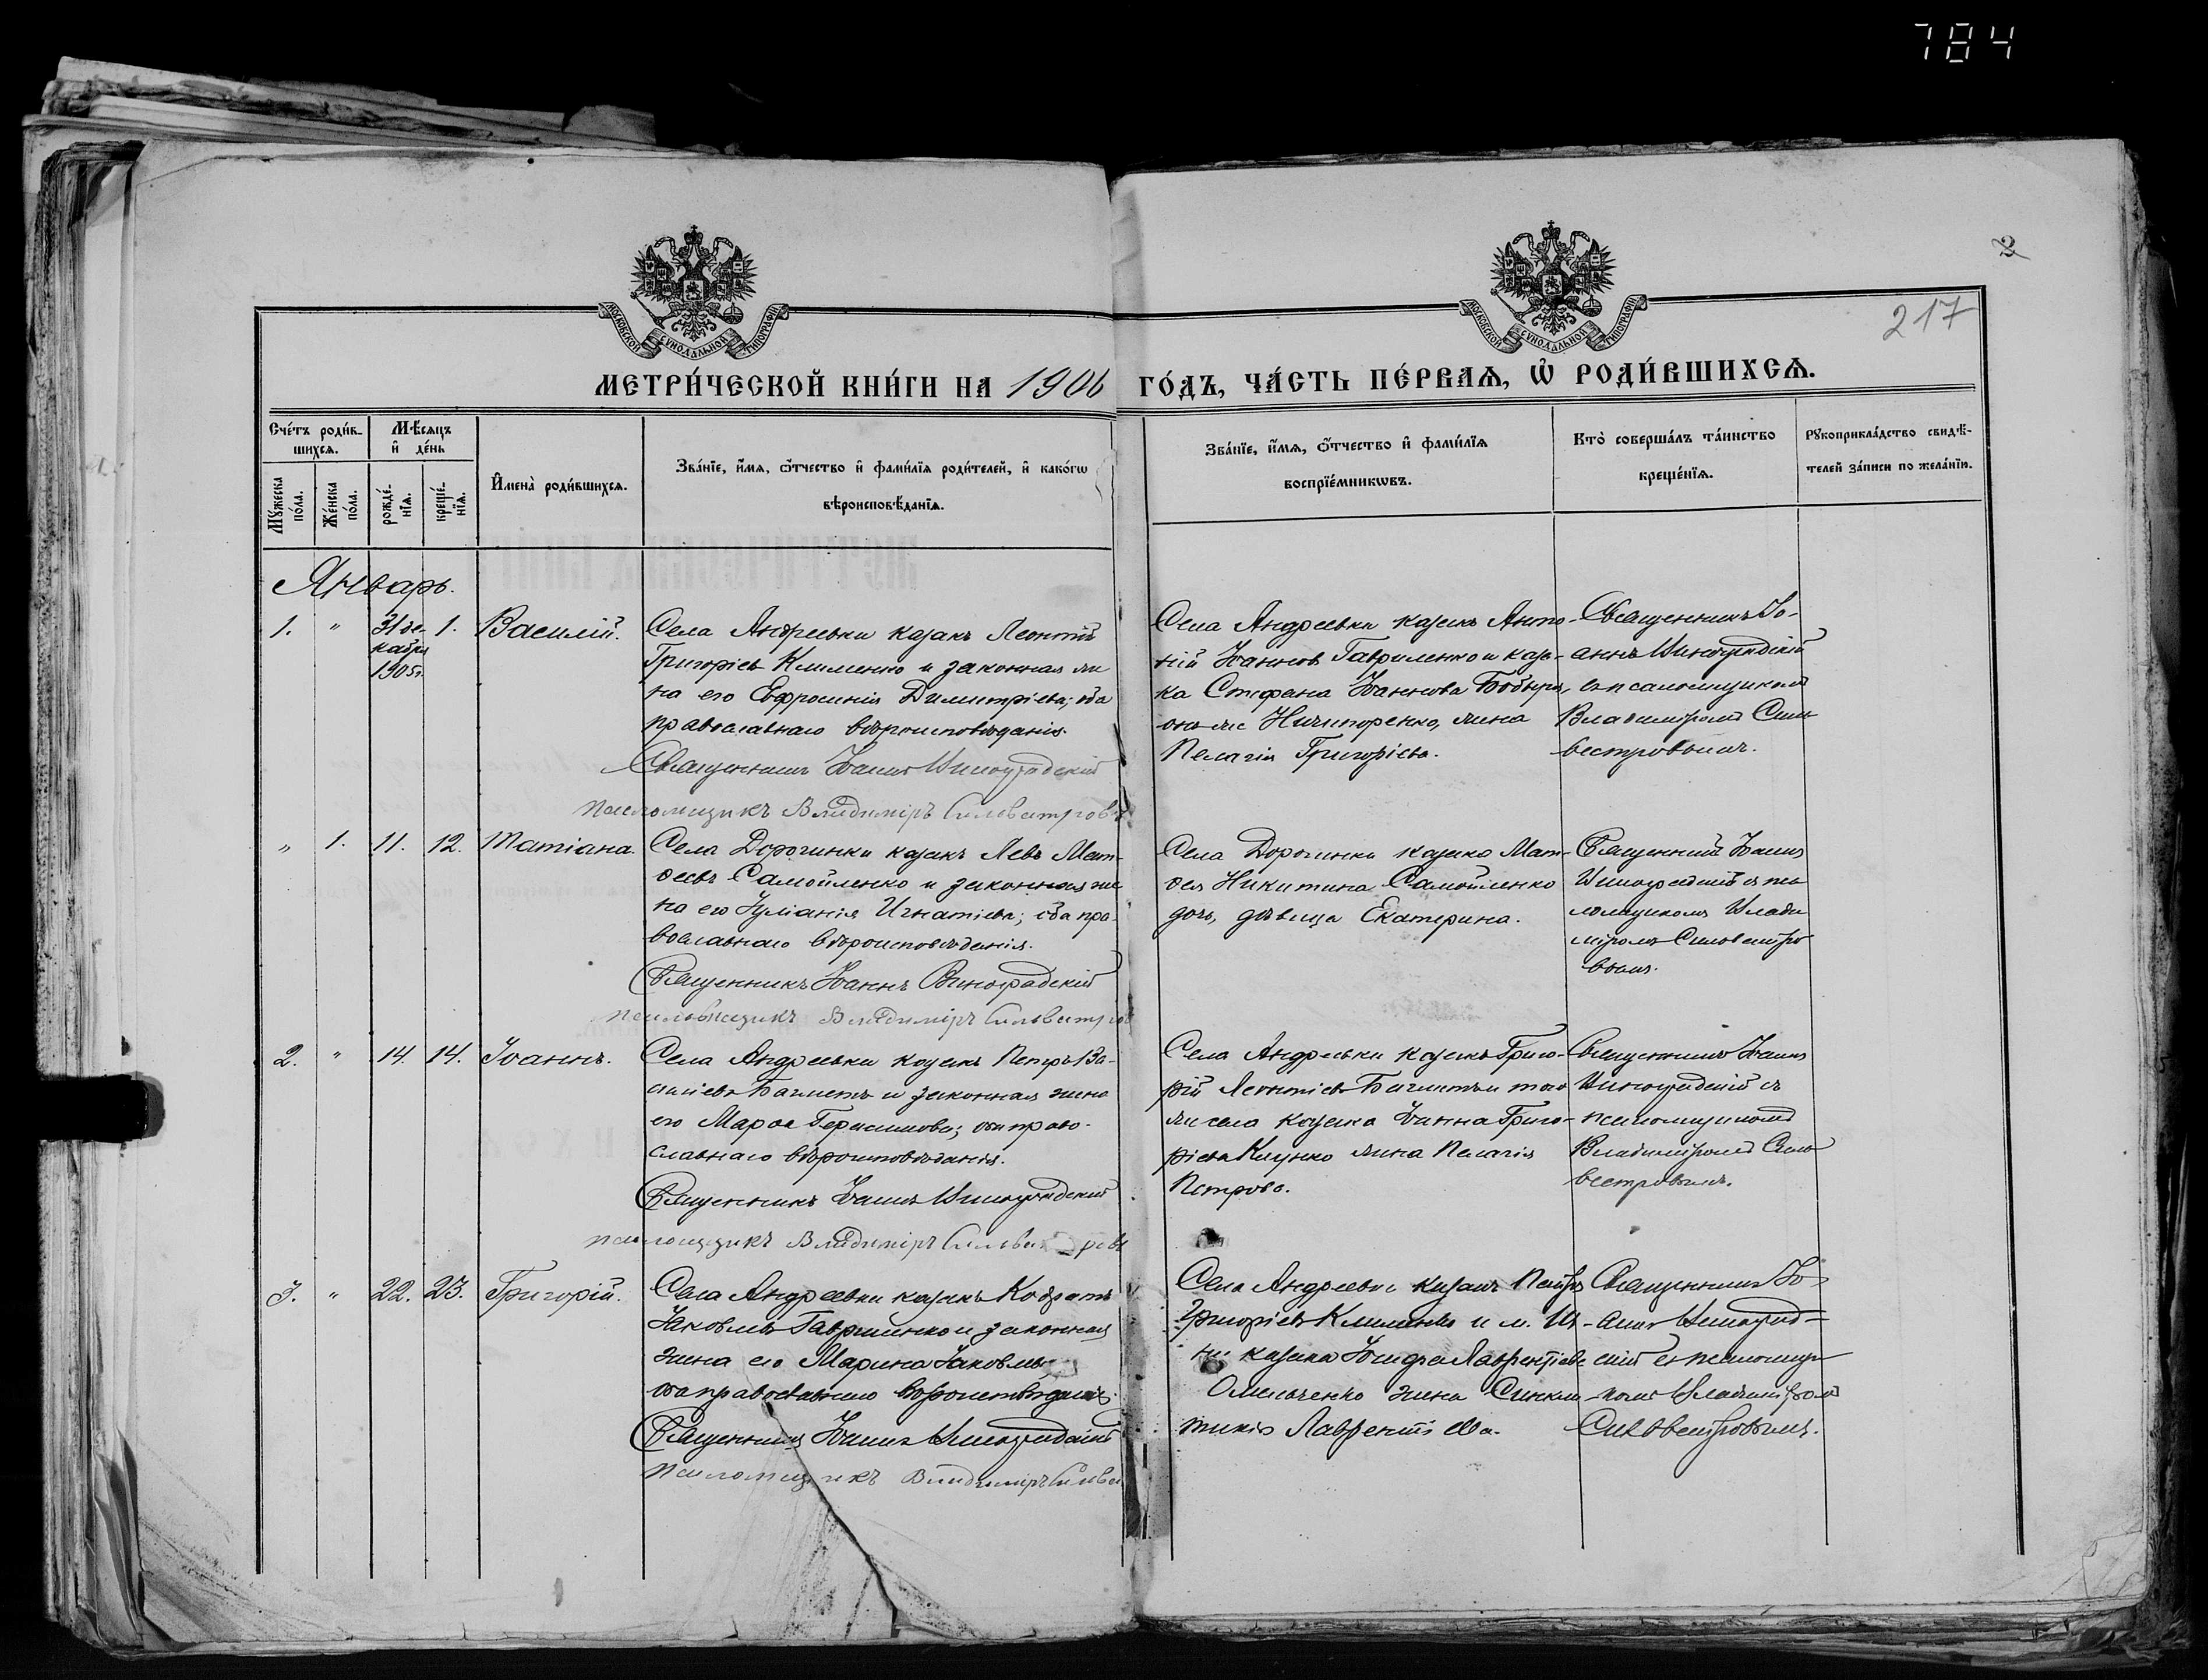 784
2
217
МОСКОВСКОЙ СѴНОДАЛЬНОЙ ТИПОГРАФІИ
МОСКОВСКОЙ СѴНОДАЛЬНОЙ ТИПОГРАФІИ
МЕТРИ́ЧЕСКОЙ КНИ́ГИ НА 1906 ГО́ДЪ, ЧА́СТЬ ПЕ́РВАѦ, Ѡ҆ РОДИ́ВШИХСѦ.
Счéтъ роди́в-
шихсѧ.
Мꙋ́жеска пóла.
Же́нска пóла.
Мѣ́сѧцъ
и҆ де́нь
рожде́-
нїѧ.
креще́-
нїѧ.
И҆менà роди́вшихсѧ.
Зва́нїе, и҆́мѧ, ѻ҆́тчество и҆ фами́лїѧ роди́телей, и҆ како́гѡ
вѣроисповѣ́данїѧ.
Зва́нїе, и҆́мѧ, ѻ҆́тчество и҆ фами́лїѧ
воспрїе́мникѡвъ.
Кто̀ соверша́лъ та́инство
креще́нїѧ.
Рꙋкоприкла́дство свидѣ́-
телей за́писи по жела́нїю.
Январь.
1. " 31 де- 1. Василій.
кабря
1905 г.
Села Андреевки казакъ Леонтій
Григоріевъ Клименко и законная же
на его Евфросинія Димитріева; оба
православнаго вѣроисповѣданія.
Священникъ Іоаннъ Виноградскій
псаломщикъ Владиміръ Сильвестровъ
Села Андреевки казакъ Анто-
ній Іоанновъ Гавриленко и каза-
ка Стефана Іоаннова Бобыря,
онъ же Ничипоренко, жена
Пелагія Григоріева.
Священникъ Іо-
аннъ Виноградскій
съ псаломщикомъ
Владиміромъ Силь
вестровымъ.
" 1. 11. 12. Татіана.
Села Дорогинки казакъ Левъ Мат-
ѳеевъ Самойленко и законная же
на его Іуліанія Игнатіева; оба пра-
вославнаго вѣроисповѣданія.
Священникъ Іоаннъ Виноградскій
псаломщикъ Владиміръ Сильвестров
Села Дорогинки казака Мат-
ѳея Никитина Самойленко
дочь, дѣвица Екатерина.
Священникъ Іоаннъ
Виноградскій съ пса
ломщикомъ Влади
міромъ Сильвестро
вымъ.
2. " 14. 14. Іоаннъ.
Села Андреевки казакъ Петръ Ва-
силіевъ Багметъ и законная жена
его Марѳа Герасимова; оба право-
славнаго вѣроисповѣданія.
Священникъ Іоаннъ Виноградскій
псаломщикъ Владиміръ Сильвес ровъ
Села Андреевки казакъ Григо-
рій Леонтіевъ Багметъ и того
же села казака Іоанна Григо-
ріева Клунко жена Пелагія
Петрова.
Священникъ Іоаннъ
Виноградскій съ
псаломщикомъ
Владиміромъ Силь
вестровымъ.
3. " 22. 23. Григорій.
Села Андреевки казакъ Кодратъ
Іаковлевъ Гавриленко и законная
жена его Марина Іаковлева
оба православнаго вѣроисповѣданія.
Священникъ Іоаннъ Виноградскій
псаломщикъ Владиміръ Сильве
Села Андреевки казакъ Петръ
Григоріевъ Клименко и м. Ич-
ни казака Лаврентіев
Омельченко жена Синкли
тикія Лаврентіева.
Священникъ Іо-
аннъ Виноград-
скій съ псаломщи
комъ Владиміромъ
Сильвестровымъ.